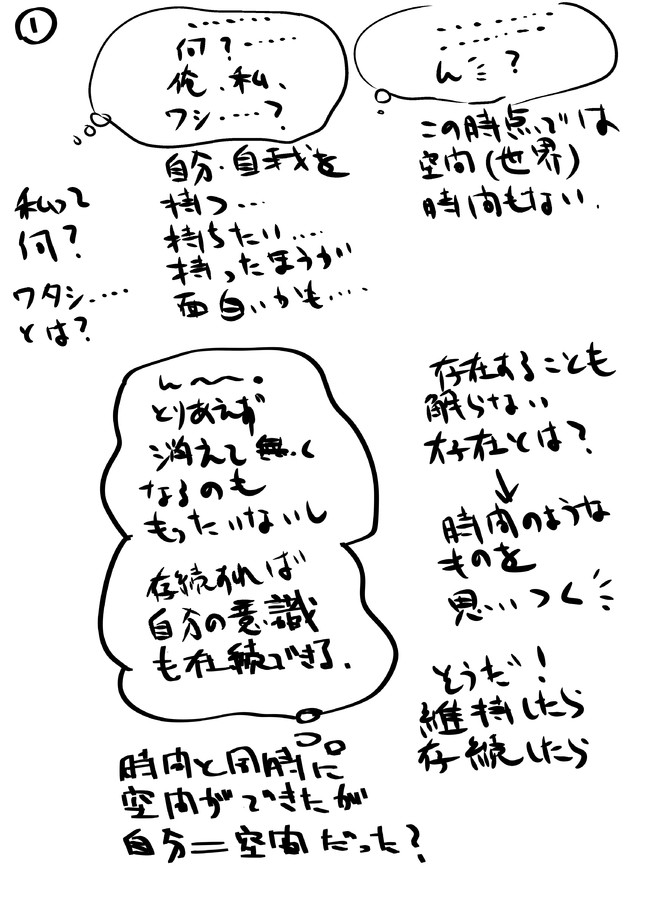 ①
‥‥‥
‥‥‥
ん ?
この時点では
空間(世界)
時間もない.
‥‥‥
何?‥‥‥
俺、私、
ワシ‥‥?
自分・自我を
持つ…
持ちたい‥‥
持ったほうが
面白いかも‥‥
私って
何?
ワタシ‥‥
とは?
存在することも
解らない
存在とは?
↓
時間のような
ものを
思いつく
そうだ!
維持したら
存続したら
ん〜〜。
とりあえず
消えて無く
なるのも
もったいないし
存続すれば
自分の意識
も存続できる.
時間と同時に
空間ができたが
自分=空間だった?